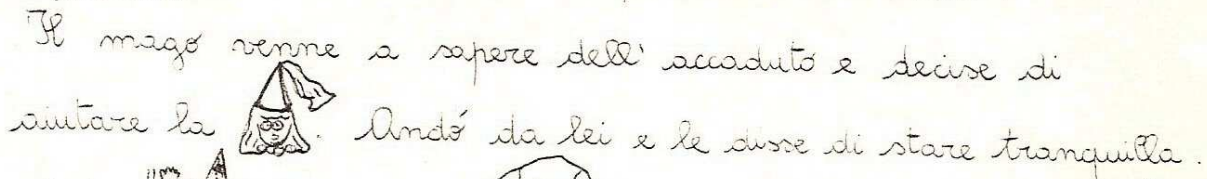 Il mago venne a sapere dell' accaduto e decise di
aiutare la . Andó da lei e le disse di stare tranquilla.